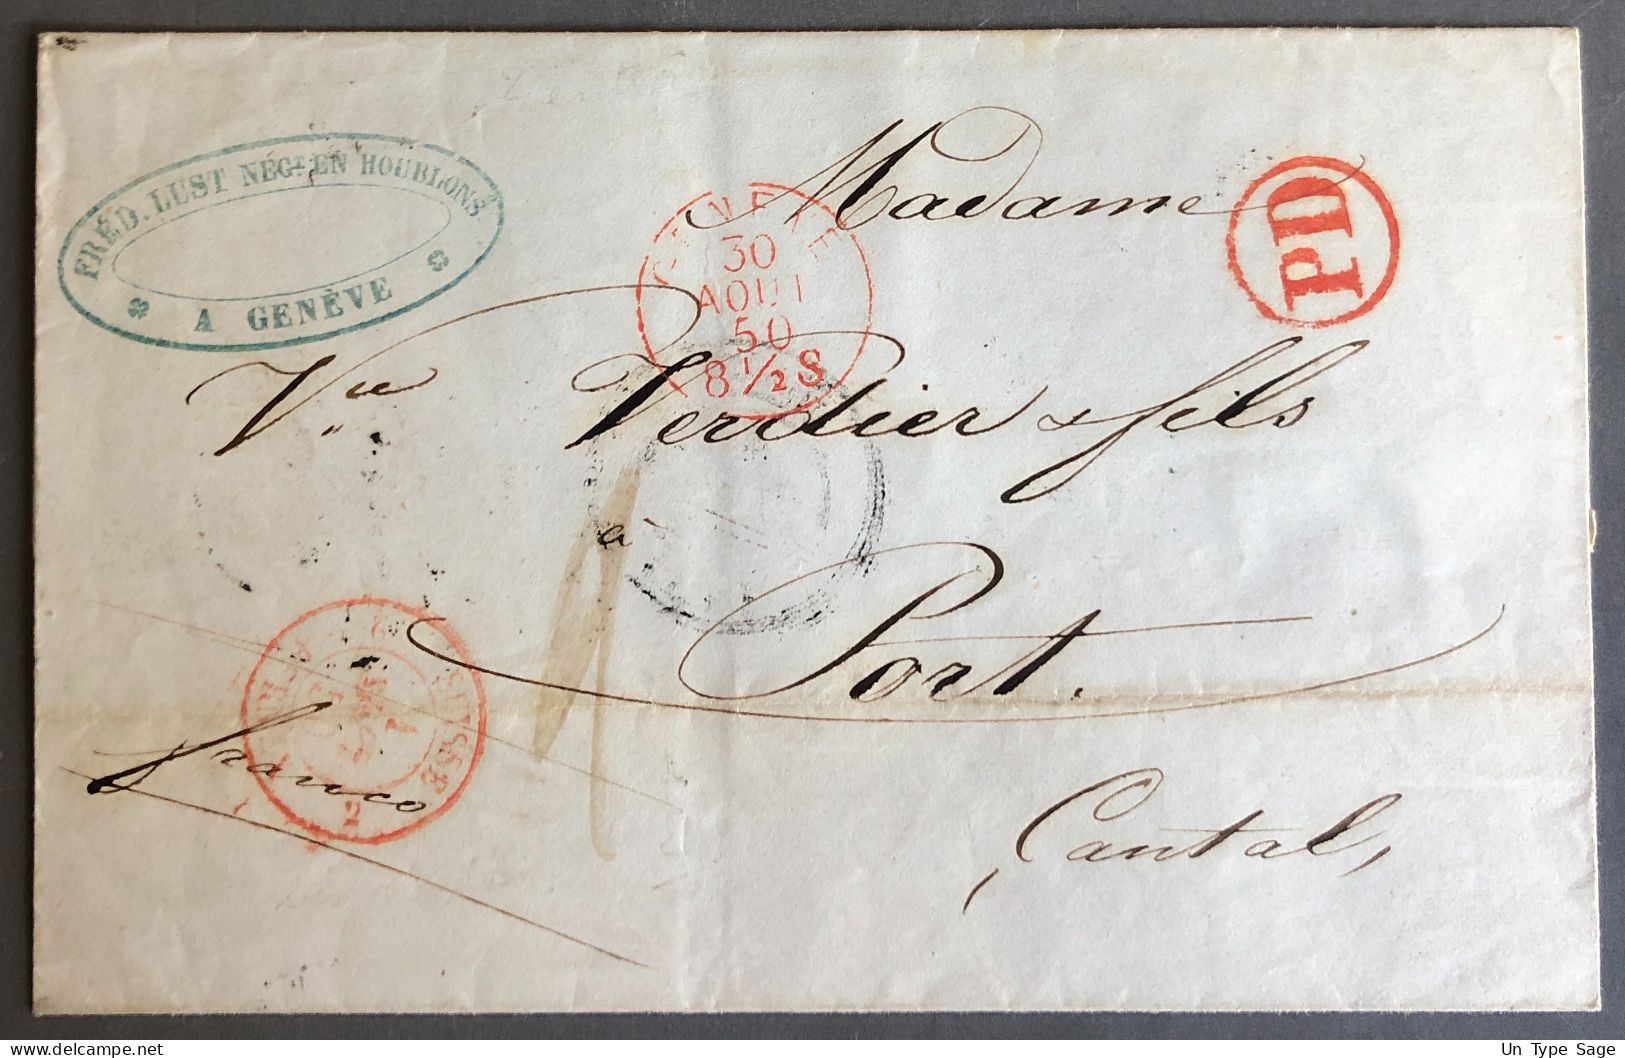 FRÉD. LUST NÉGT. EN HOUBLONS
A GENÈVE
Madame
PD
GENEVE
30
AOUT
50
8 1/2 S
Vve Verdier & fils
à
Port.
franco
SUISSE
2
Cantal,
Un Type Sage